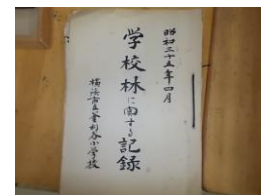 昭和三十五年四月
学校林に関する記録
横浜市立釜利谷小学校